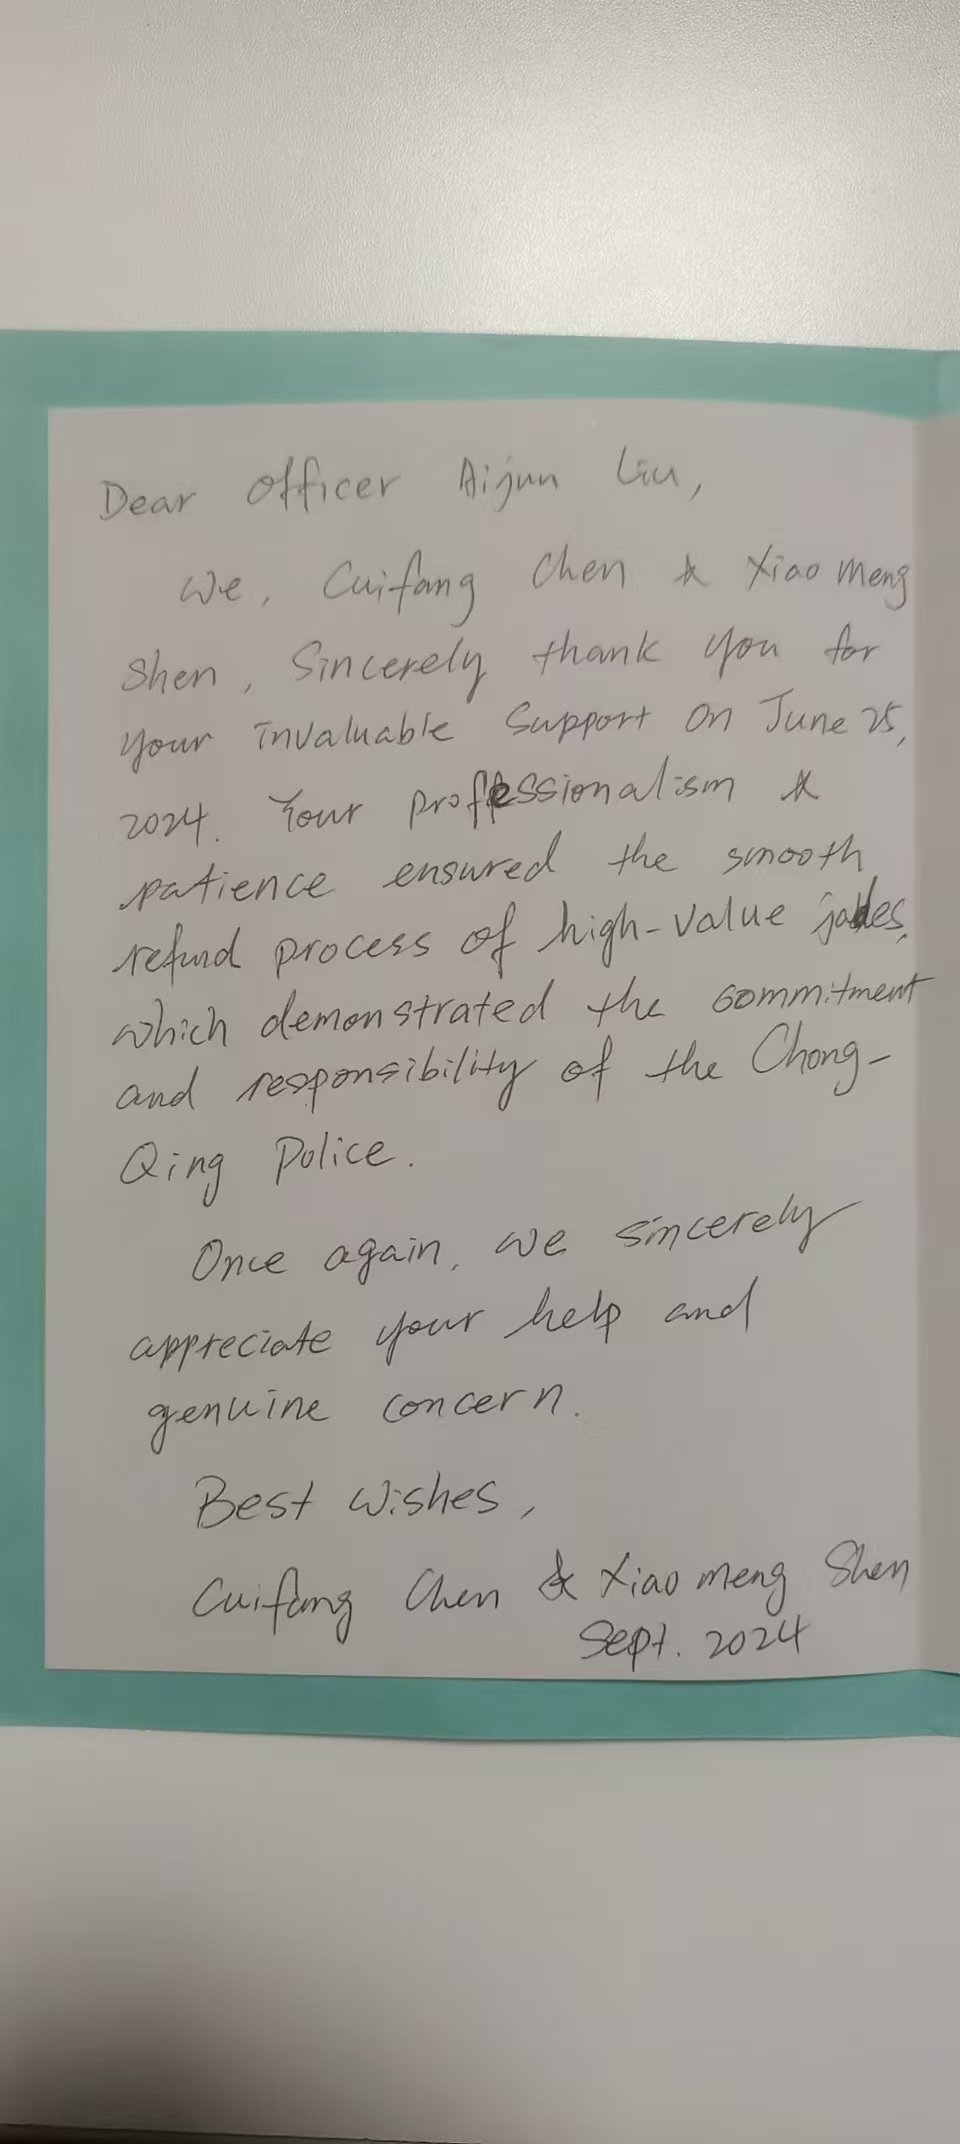 Dear Officer Aijun Liu,
We, Cuifang Chen & Xiao meng
Shen, Sincerely thank you for
your invaluable Support on June 25,
2024. Your professionalism &
patience ensured the smooth
refund process of high-value jades,
which demonstrated the commitment
and responsibility of the Chong-
Qing Police.
Once again, we sincerely
appreciate your help and
genuine concern.
Best Wishes,
Cuifang Chen & Xiao meng Shen
Sept. 2024